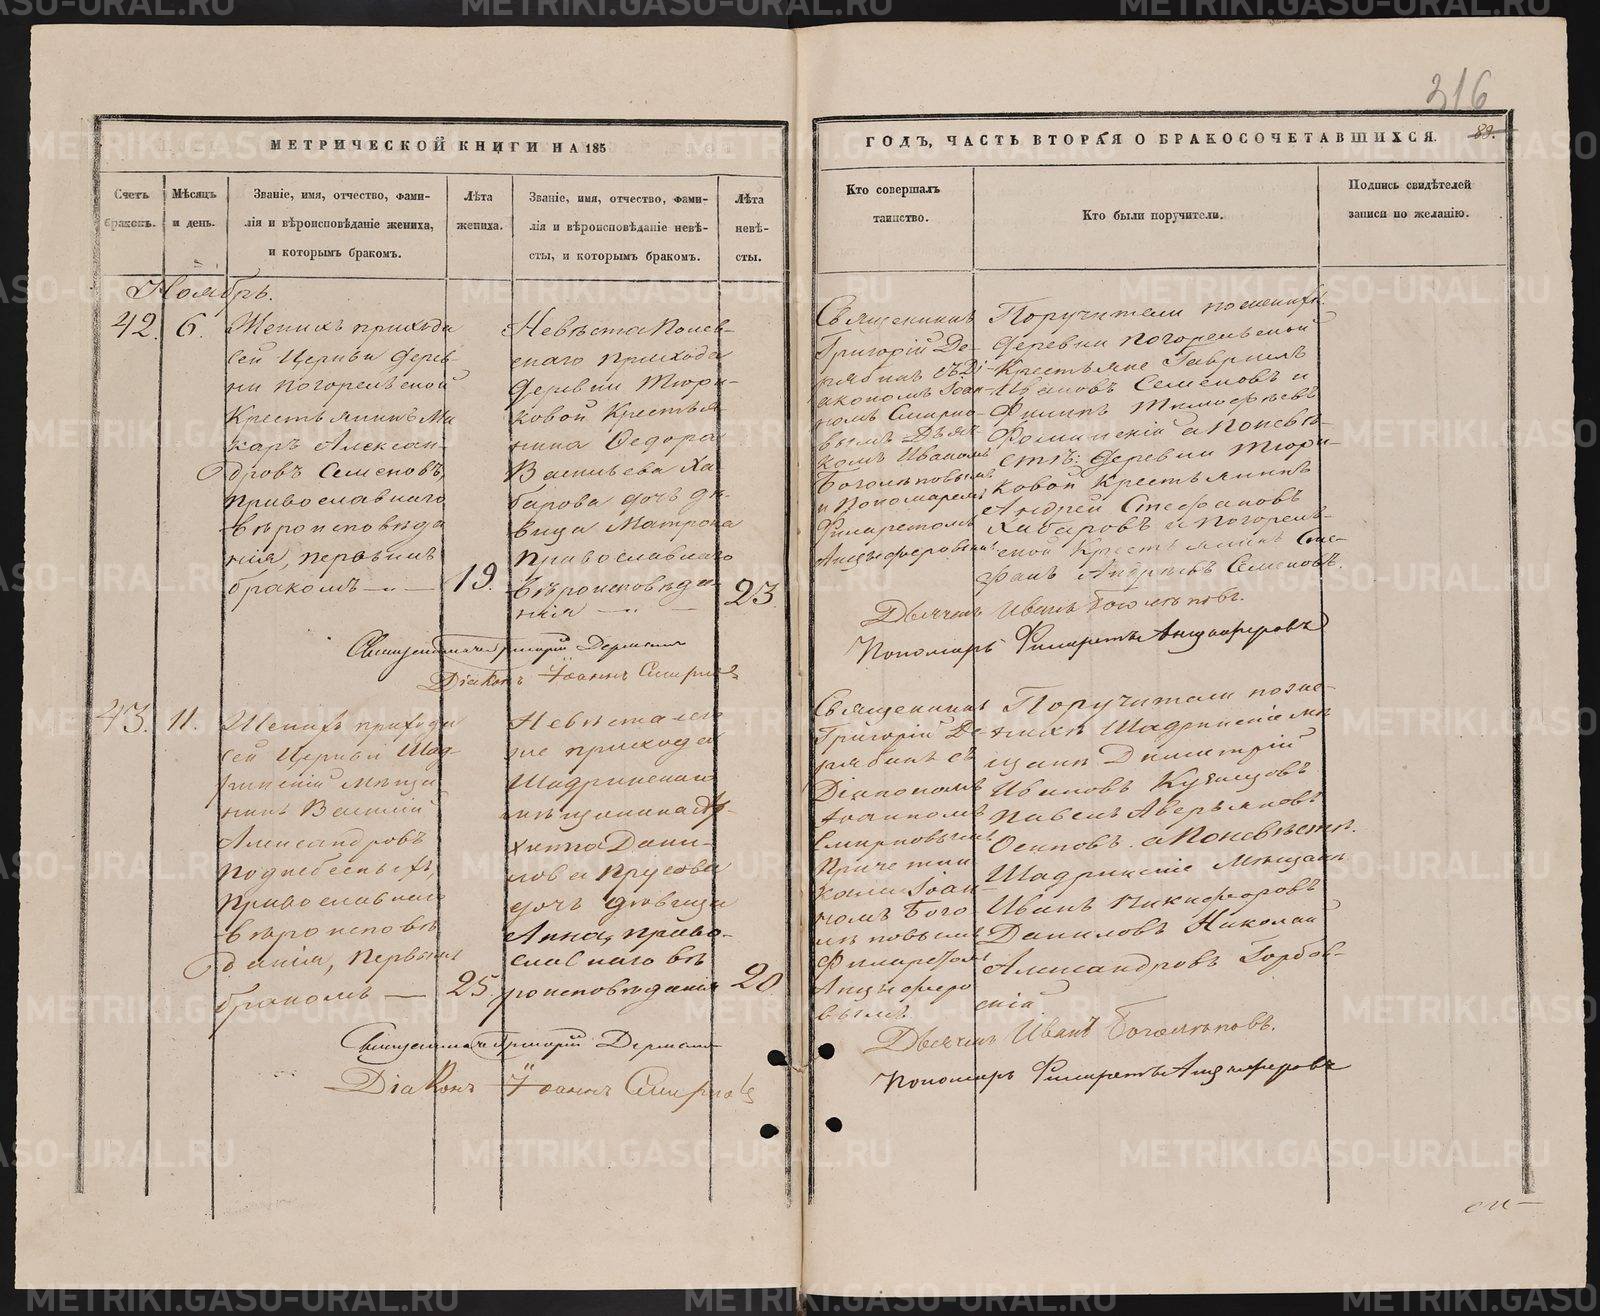 316
МЕТРИЧЕСКОЙ КНИГИ НА 185
ГОДЪ, ЧАСТЬ ВТОРАЯ О БРАКОСОЧЕТАВШИХСЯ.
89.
Счетъ браковъ.
Мѣсяцъ и день.
Званіе, имя, отчество, фами-
лія и вѣроисповѣданіе жениха,
и которымъ бракомъ.
Лѣта
жениха.
Званіе, имя, отчество, фами-
лія и вѣроисповѣданіе невѣ-
сты, и которымъ бракомъ.
Лѣта
невѣ-
сты.
Кто совершалъ
таинство.
Кто были поручители.
Подпись свидѣтелей
записи по желанію.
Ноябрь.
42. 6.
Женихъ прихода
сей Церкви дерев-
ни Погорельской
Крестьянинъ Ма
каръ Алексан-
дровъ Семеновъ,
православнаго
вѣроисповѣда
нія, первымъ
бракомъ — 19.
Невѣста Полев-
скаго прихода
деревни Тюри-
ковой Крестья
нина Ѳедора
Васильева Ха
барова дочь дѣ-
вица Матрона
православнаго
вѣроисповѣда-
нія — 23
Священникъ
Григорій Де-
рябинъ съ Ді-
акономъ Іоан-
номъ Смирно-
вымъ Дьяч-
комъ Иваномъ
Боголѣповымъ
и Пономаремъ
Филаретомъ
Анцыферовымъ
Поручители по женихѣ
деревни Погорельской
Крестьяне Гавріилъ
Ивановъ Семеновъ и
Филипъ Тимофѣевъ
а по невѣ-
стѣ: деревни Тюри-
ковой Крестьянинъ
Андрей Стефановъ
Хабаровъ и Погорель-
ской Крестьянинъ Сте-
фанъ Андреевъ Семеновъ.
Священникъ Григорій Дерябинъ
Діаконъ Іоаннъ Смирновъ
Дьячекъ Иванъ Боголѣповъ.
Пономарь Филаретъ Анцыферовъ
43. 11.
Женихъ прихода
сей Церкви Шад-
ринскій мѣща
нинъ Василій
Александровъ
Поднебесныхъ,
православнаго
вѣроисповѣ
данія, первымъ
бракомъ — 25.
Невѣста сего
же прихода
Шадринскаго
мѣщанина Ар-
хиппа Дани-
лова Прусова
дочь дѣвица
Анна, право-
славнаго вѣ
роисповѣданія 20
Священникъ
Григорій Де-
рябинъ съ
Діакономъ
Іоанномъ
Смирновымъ
Причетни
ками Іоан-
номъ Бого
лѣповымъ
Филаретомъ
Анцыферо
вымъ.
Поручители по же-
нихѣ Шадринскіе мѣ
щане Димитрій
Ивановъ Кузнецовъ
Павелъ Аверьяновъ
Осиповъ. а по невѣстѣ.
Шадринскіе Мѣщане
Иванъ Никифоровъ
Даниловъ Николай
Александровъ Горбов-
скій
Священникъ Григорій Дерябинъ
Діаконъ Іоаннъ Смирновъ
Дьячекъ Иванъ Боголѣповъ.
Пономарь Филаретъ Анцыферовъ
METRIKI.GASO-URAL.RU